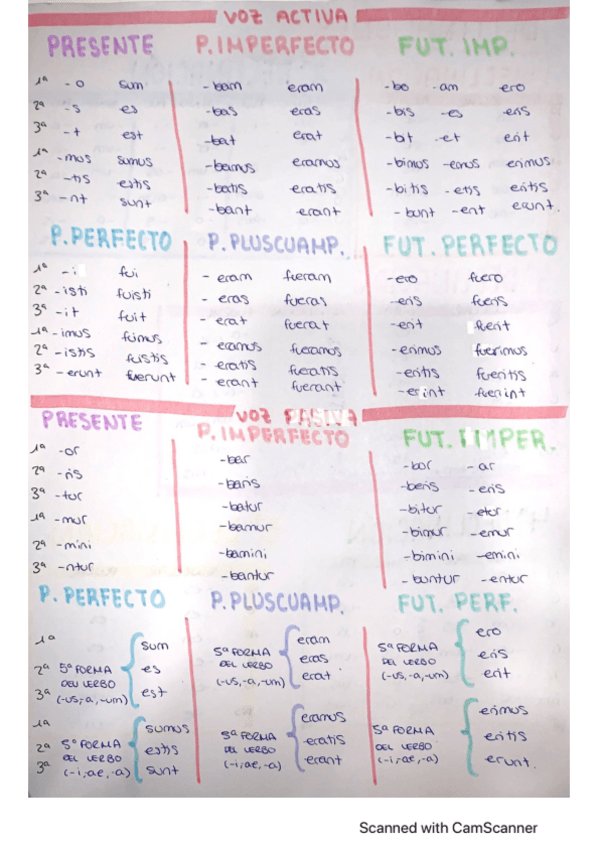 VOZ ACTIVA
PRESENTE P.IMPERFECTO FUT. IMP.
1ª -o sum -bam eram -bo -am ero
2ª -s es -bas eras -bis -es eris
3ª -t est -bat erat -bit -et erit
1ª -mus sumus -bamus eramus -bimus -emus erimus
2ª -tis estis -batis eratis -bitis -etis eritis
3ª -nt sunt -bant erant -bunt -ent erunt.
P.PERFECTO P. PLUSCUAMP. FUT. PERFECTO
1ª -i fui - eram fueram -ero fuero
2ª -isti fuisti - eras fueras -eris fueris
3ª -it fuit - erat fuerat -erit fuerit
1ª -imus fuimus - eramus fueramus -erimus fuerimus
2ª -istis fuistis - eratis fueratis -eritis fueritis
3ª -erunt fuerunt - erant fuerant -erint fuerint
VOZ PASIVA
PRESENTE P. IMPERFECTO FUT. IMPER.
1ª -or -bar -bor -ar
2ª -ris -baris -beris -eris
3ª -tur -batur -bitur -etur
1ª -mur -bamur -bimur -emur
2ª -mini -bamini -bimini -emini
3ª -ntur -bantur -buntur -entur
P. PERFECTO P.PLUSCUAMP. FUT. PERF.
1ª sum eram ero
2ª 5ª FORMA es 5ª FORMA eras 5ª FORMA eris
DEL VERBO DEL VERBO DEL VERBO
3ª (-us,-a,-um) est (-us,-a,-um) erat (-us,-a,-um) erit
1ª sumus eramus erimus
2ª 5ª FORMA estis 5ª FORMA eratis 5ª FORMA eritis
DEL VERBO DEL VERBO DEL VERBO
3ª (-i,-ae,-a) sunt (-i,-ae,-a) erant (-i,-ae,-a) erunt.
Scanned with CamScanner